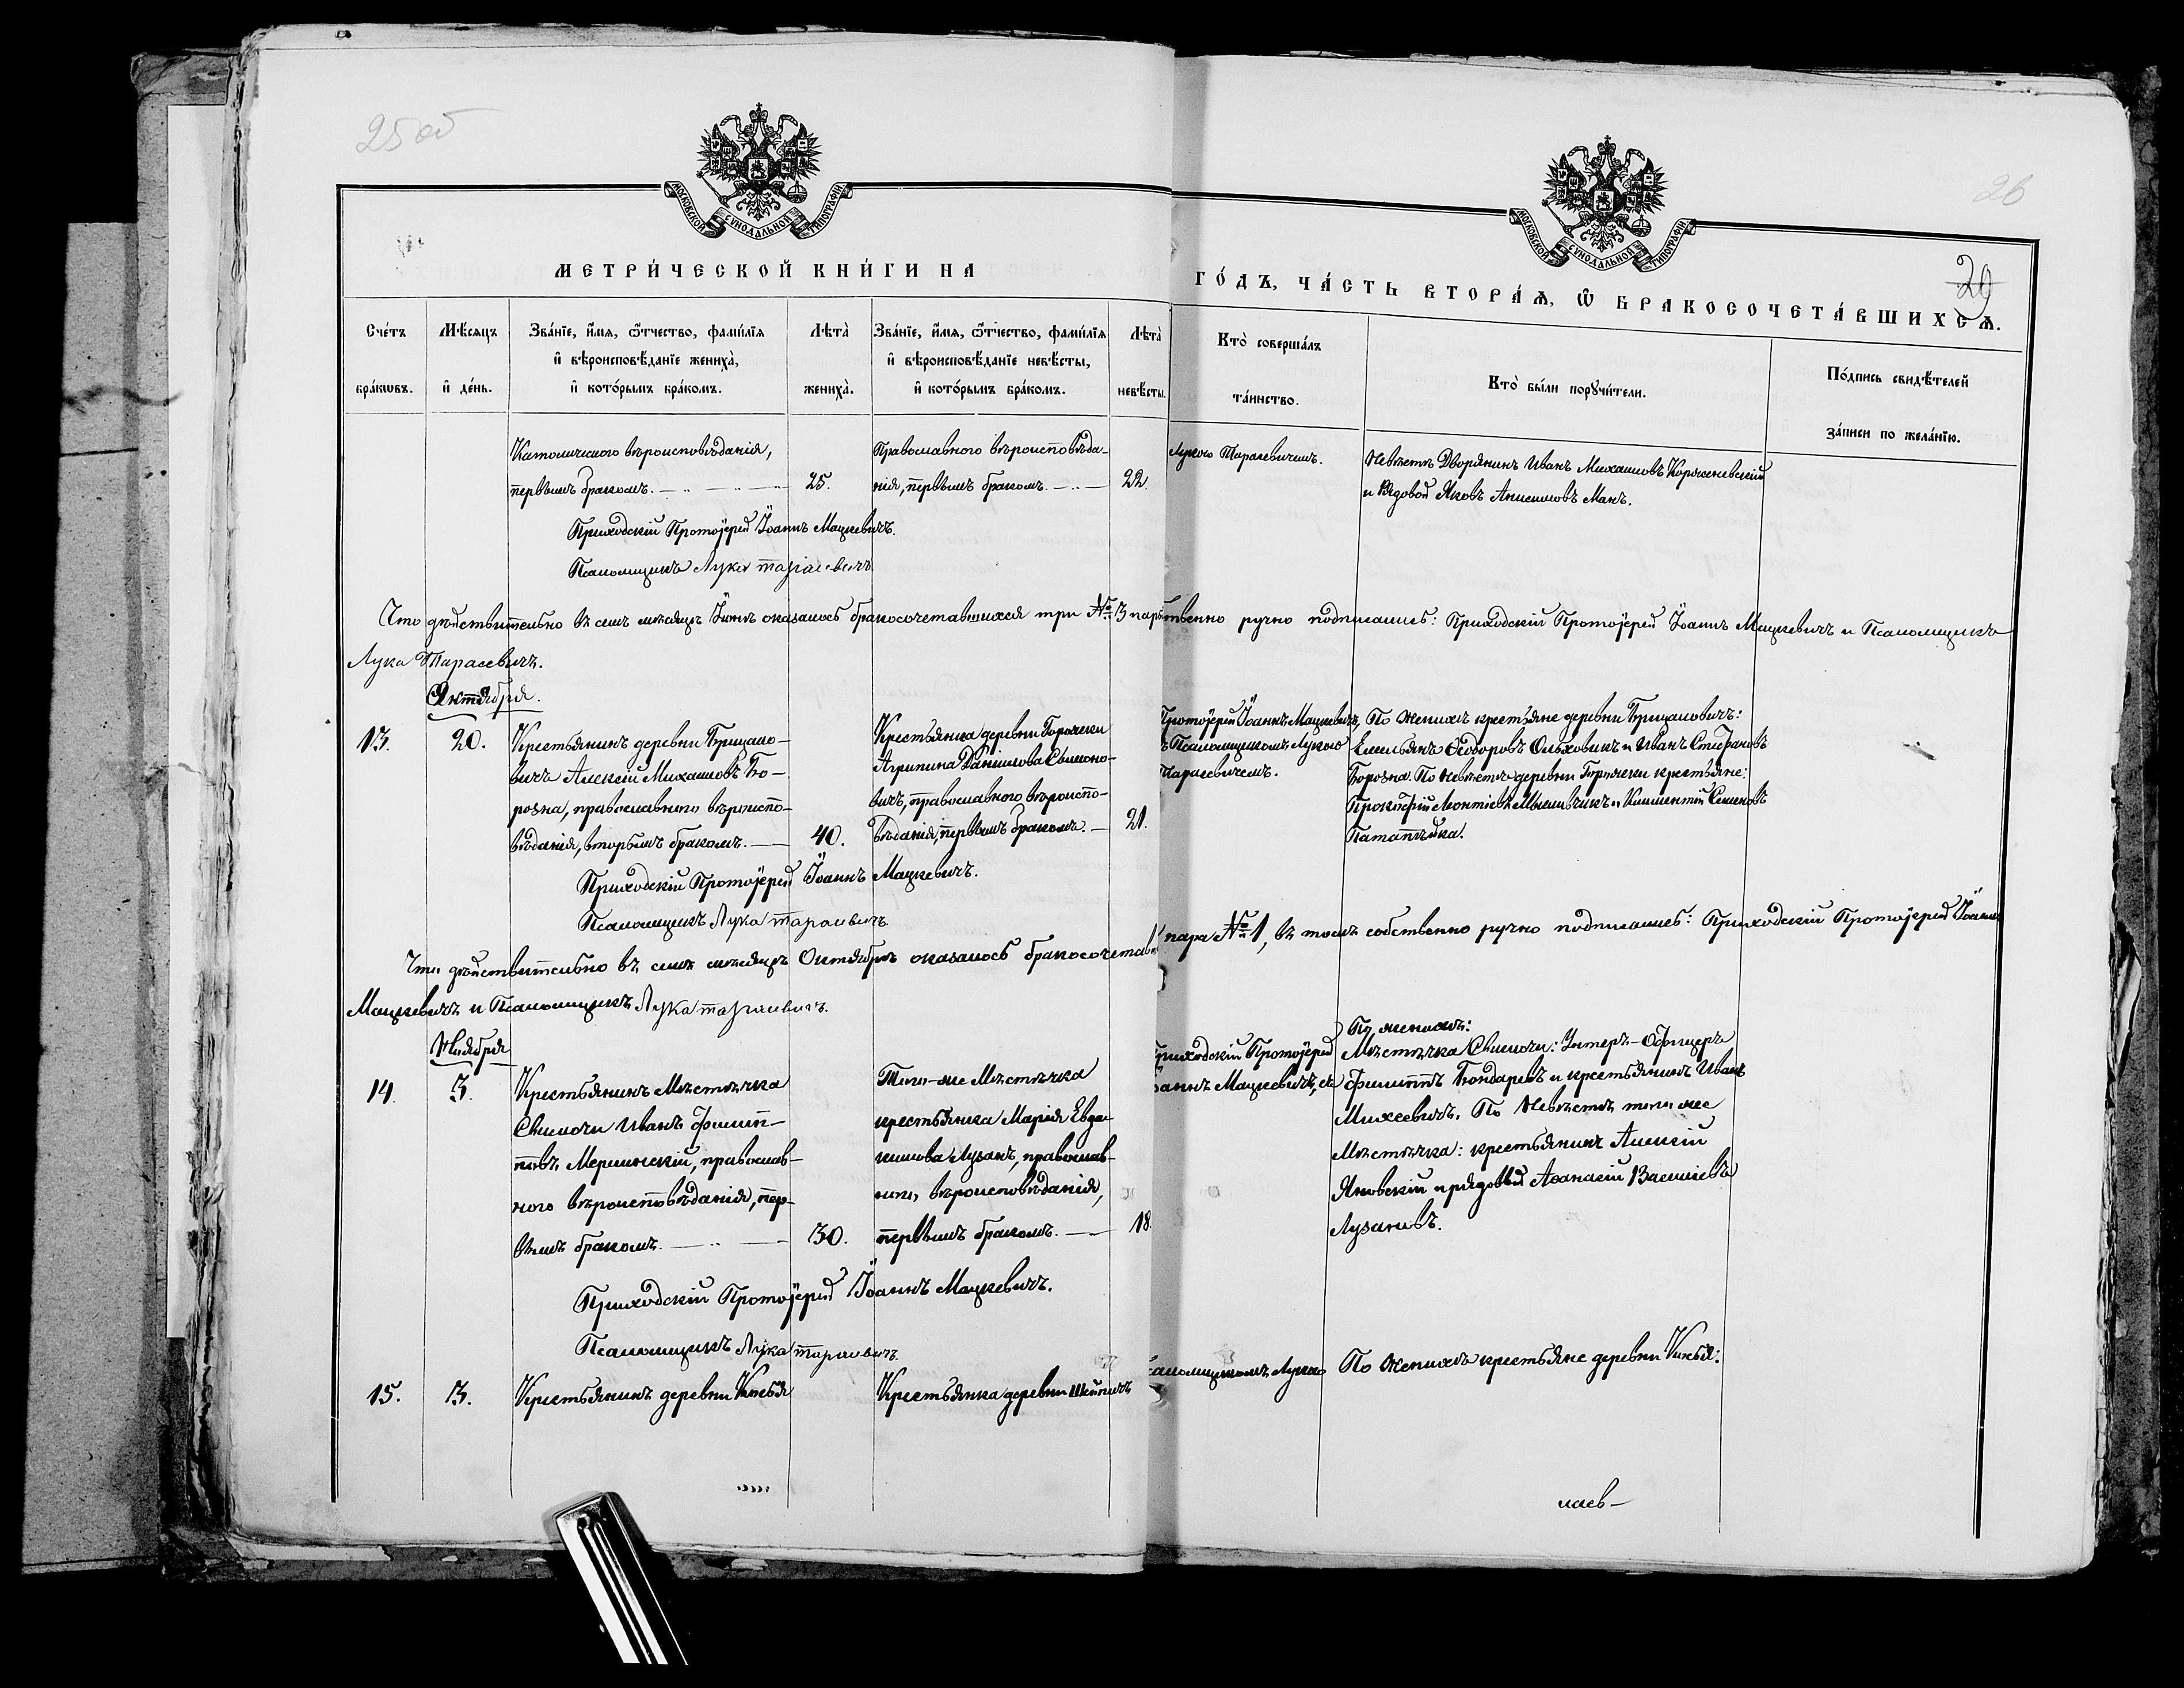 25 об
26
29
МОСКОВСКОЙ СѴНОДАЛЬНОЙ ТИПОГРАФІИ
МОСКОВСКОЙ СѴНОДАЛЬНОЙ ТИПОГРАФІИ
МЕТРИ́ЧЕСКОЙ КНИ́ГИ НА
ГО́ДЪ, ЧА́СТЬ ВТОРА́Ѧ, Ѿ БРАКОСОЧЕТА́ВШИХСѦ.
Сче́тъ бра́кѡвъ.
Мѣ́сяцъ и҆ де́нь.
Зва́нїе, и҆́мя, ѻ҆́тчество, фами́лїя
и҆ вѣроисповѣ́данїе жениха̀,
и҆ кото́рымъ бра́комъ.
Лѣта̀ жениха̀.
Зва́нїе, и҆́мя, ѻ҆́тчество, фами́лїя
и҆ вѣроисповѣ́данїе невѣ́сты,
и҆ кото́рымъ бра́комъ.
Лѣта̀ невѣ́сты.
Кто̀ соверша́лъ
та́инство.
Кто̀ бы́ли порꙋчи́тели.
По́дпись свидѣ́телей
за́писи по жела́нїю.
Католическаго вѣроисповѣданія,
первымъ бракомъ. 25.
Православнаго вѣроисповѣда-
нія, первымъ бракомъ. 22.
Лукою Тарасевичемъ.
Невѣстѣ Дворянинъ Иванъ Михаиловъ Корженевскій
и Рядовой Яковъ Анисимовъ Манъ.
Приходскій Протоіерей Іоаннъ Мацкевичъ.
Псаломщикъ Лука Тарасевичъ
Что дѣйствительно въ семъ мѣсяцѣ Іюнѣ оказалось бракосочетавшихся три № 3 пары
твенно ручно подписались: Приходскій Протоіерей Іоаннъ Мацкевичъ и Псаломщикъ
Лука Тарасевичъ.
Октября.
13. 20. Крестьянинъ деревни Брицало-
вичъ Алексій Михаиловъ Бо-
розна, православнаго вѣроиспо-
вѣданія, вторымъ бракомъ. 40.
Крестьянка деревни Горожки
Агрипина Даніилова Свислоно-
вичъ, православнаго вѣроиспо-
вѣданія, первымъ бракомъ. 21.
Протоіерей Іоаннъ Мацкевичъ,
ъ Псаломщикомъ Лукою
Тарасевичемъ.
По Женихѣ крестьяне деревни Брицаловичъ:
Емельянъ Ѳеодоровъ Ольховикъ и Иванъ Стефановъ
Борозна. По Невѣстѣ деревни Горожки крестьяне:
Прокофій Леонтіевъ и Климентій Семеновъ
Приходскій Протоіерей Іоаннъ Мацкевичъ.
Псаломщикъ Лука Тарасевичъ.
Что дѣйствительно въ семъ мѣсяцѣ Октябрѣ оказалось бракосочетав
пара № 1, въ томъ собственно ручно подписались: Приходскій Протоіерей Іоаннъ
Мацкевичъ и Псаломщикъ Лука Тарасевичъ.
Ноября
14. 3. Крестьянинъ Мѣстечка
Свислочи Иванъ Филипп-
повъ Мерлинскій, православ-
ного вѣроисповѣданія, пер-
вымъ бракомъ. 30.
Того-же Мѣстечка
крестьянка Марія Евдо-
кимова Лузанъ, православ-
ного вѣроисповѣданія,
первымъ бракомъ. 18.
Приходскій Протоіерей
оаннъ Мацкевичъ, съ
По женихѣ:
Мѣстечка Свислочи: Унтеръ-Офицеръ
Филиппъ Бондаревъ и крестьянинъ Иванъ
Михеевичъ. По Невѣстѣ того же
Мѣстечка: крестьянинъ Алексій
Яновскій и рядовой Аѳанасій Василіевъ
Лузановъ.
Приходскій Протоіерей Іоаннъ Мацкевичъ.
Псаломщикъ Лука Тарасевичъ.
15. 3. Крестьянинъ деревни
Крестьянка деревни
саломщикомъ Лукою
По Женихѣ крестьяне деревни